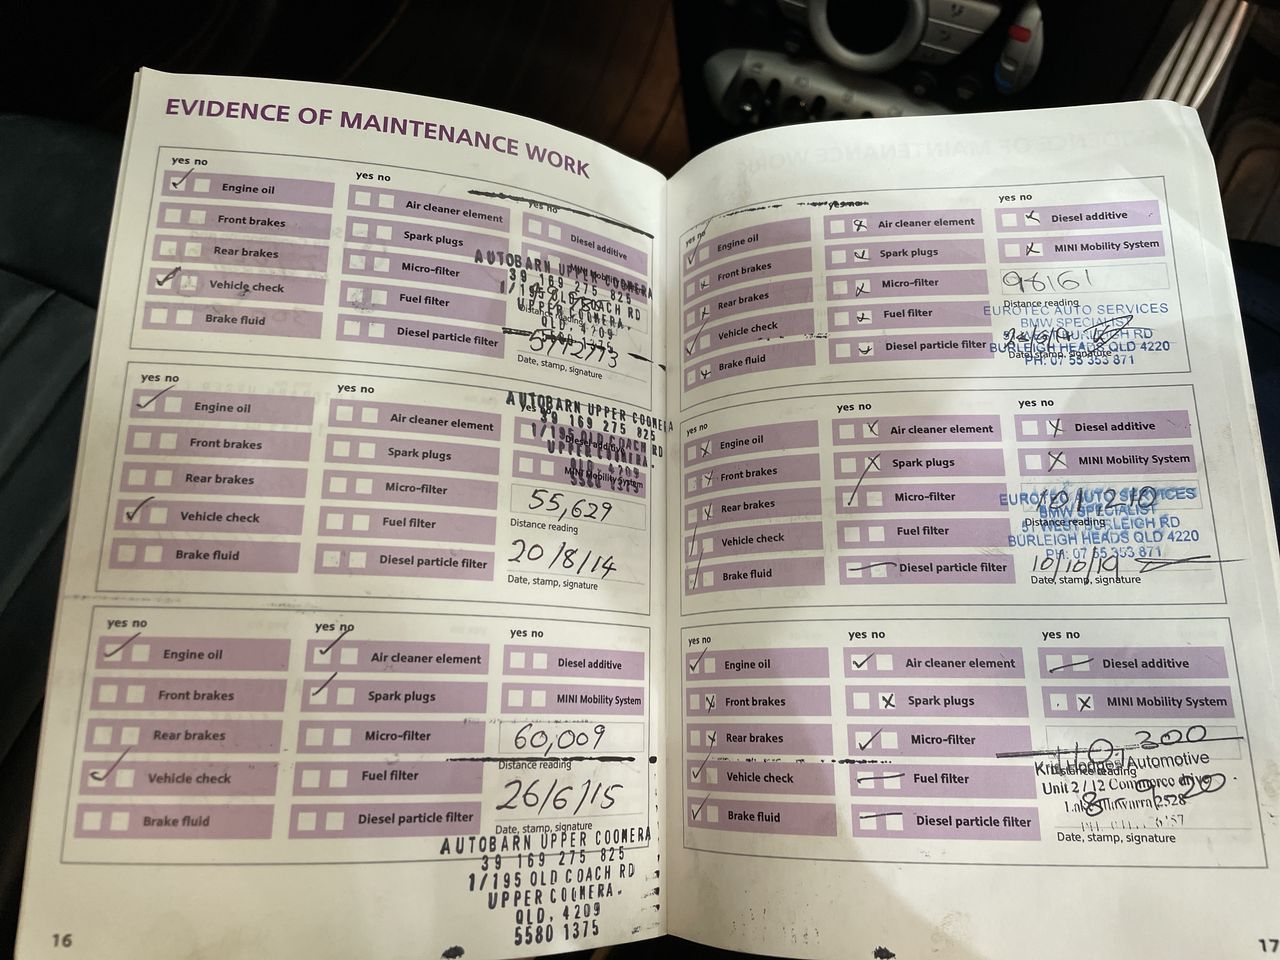 EVIDENCE OF MAINTENANCE WORK
yes no
Engine oil
Front brakes
Rear brakes
Vehicle check
Brake fluid
yes no
Air cleaner element
Spark plugs
Micro-filter
Fuel filter
Diesel particle filter
yes no
Diesel additive
AUTOBARN UPPER COOMERA
39 169 275 825
1/195 OLD COACH RD
UPPER COOMERA.
QLD. 4209
5580 1375
Date, stamp, signature
yes no
Engine oil
Front brakes
Rear brakes
Vehicle check
Brake fluid
yes no
Air cleaner element
Spark plugs
Micro-filter
Fuel filter
Diesel particle filter
AUTOBARN UPPER COOMERA
yes no
39 169 275 825
Diesel additive
1/195 OLD COACH RD
UPPER COOMERA.
MINI Mobility System
QLD. 4209
5580 1375
55,629
Distance reading
20/8/14
Date, stamp, signature
yes no
Engine oil
Front brakes
Rear brakes
Vehicle check
Brake fluid
yes no
Air cleaner element
Spark plugs
Micro-filter
Fuel filter
Diesel particle filter
yes no
Diesel additive
MINI Mobility System
60,009
Distance reading
26/6/15
Date, stamp, signature
AUTOBARN UPPER COOMERA
39 169 275 825
1/195 OLD COACH RD
UPPER COOMERA.
QLD. 4209
5580 1375
16
yes no
Engine oil
Front brakes
Rear brakes
Vehicle check
Brake fluid
yes no
Air cleaner element
Spark plugs
Micro-filter
Fuel filter
Diesel particle filter
yes no
Diesel additive
MINI Mobility System
98161
Distance reading
EUROTEC AUTO SERVICES
BMW SPECIALIST
BURLEIGH RD
BURLEIGH HEADS QLD 4220
Date, stamp, signature
PH: 07 55 353 871
yes no
Engine oil
Front brakes
Rear brakes
Vehicle check
Brake fluid
yes no
Air cleaner element
Spark plugs
Micro-filter
Fuel filter
Diesel particle filter
yes no
Diesel additive
MINI Mobility System
101 210
EUROTEC AUTO SERVICES
BMW SPECIALIST
Distance reading
WEST BURLEIGH RD
BURLEIGH HEADS QLD 4220
PH: 07 55 353 871
10/10/19
Date, stamp, signature
yes no
Engine oil
Front brakes
Rear brakes
Vehicle check
Brake fluid
yes no
Air cleaner element
Spark plugs
Micro-filter
Fuel filter
Diesel particle filter
yes no
Diesel additive
MINI Mobility System
110,300
Kris Hodges Automotive
Distance reading
Unit 2/12 Commerce drive
Lake Illawarra 2528
Date, stamp, signature
17